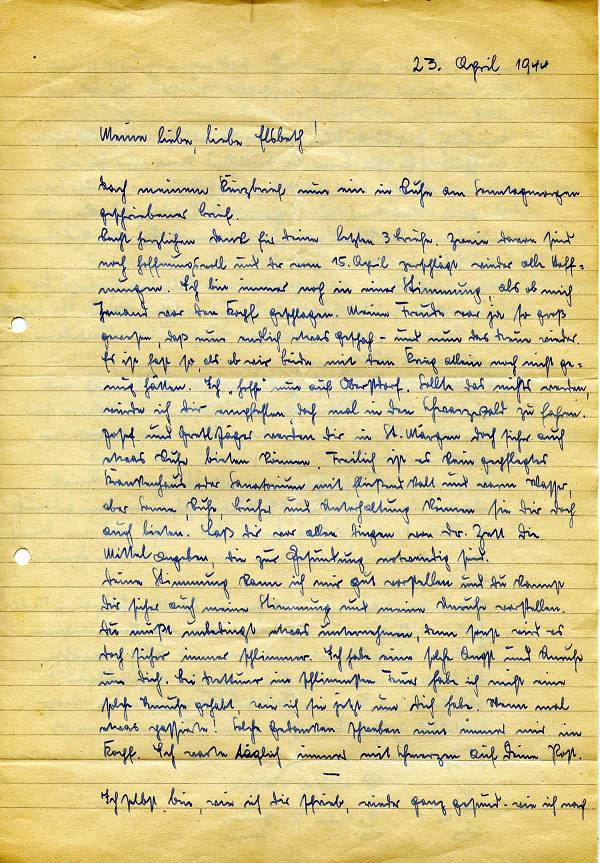 23. April 1944
Meine liebe, liebe Elsbeth!
Nach meinem Kurzbrief nun ein in Ruhe am Sonntagmorgen
geschriebener Brief.
Recht herzlichen Dank für Deine letzten 3 Briefe. Zwei davon sind
noch hoffnungsvoll und der vom 15. April zerschlägt wieder alle Hoff=
nungen. Ich bin immer noch in einer Stimmung, als ob mich
Jemand vor den Kopf geschlagen. Meine Freude war ja so groß
gewesen, daß nun endlich etwas geschah - und nun das wieder.
Es ist fast so, als ob wir beide mit dem Krieg allein noch nicht ge=
nug hätten. Ich "hoffe" nun auf Oberstdorf. Sollte das nichts werden,
würde ich Dir empfehlen, doch mal in den Schwarzwald zu fahren.
Josef und Gretl Jäger werden Dir in St. Märgen doch sicher auch
etwas Ruhe bieten können. Freilich ist es kein gepflegtes
Krankenhaus oder Sanatorium mit fließend kalt und warm Wasser,
aber Sonne, Ruhe, Bücher und Unterhaltung können sie Dir doch
auch bieten. Laß Dir vor allen Dingen von Dr. Zett die
Mittel angeben, die zur Gesundung notwendig sind.
Deine Stimmung kann ich mir gut vorstellen und Du kannst
Dir sicher auch meine Stimmung und meine Unruhe vorstellen.
Du mußt unbedingt etwas unternehmen, denn sonst wird es
doch sicher immer schlimmer. Ich habe eine solche Angst und Unruhe
um Dich. Bei im schlimmsten Feuer habe ich nicht eine
solche Unruhe gehabt, wie ich sie jetzt um Dich habe. Wenn mal
etwas passierte! Solche Gedanken schweben nun immer mir im
Kopf. Ich warte täglich immer mit Schmerzen auf Deine Post.
—
Ich selbst bin, wie ich Dir schrieb, wieder ganz gesund. wie ich noch